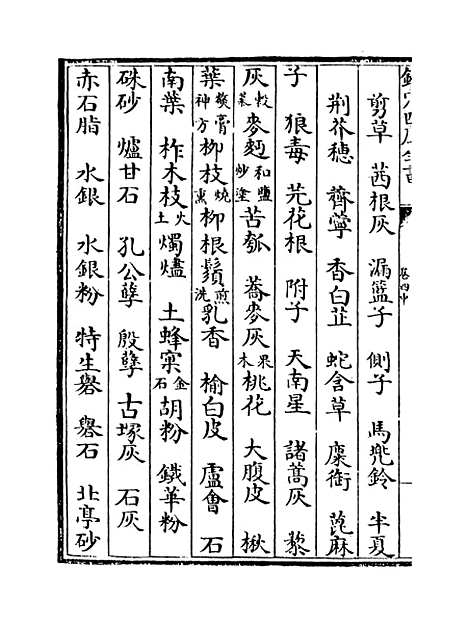 欽定四庫全書
卷四中
剪草 茜根灰 漏籃子 側子 馬兠鈴 半夏
荆芥穂 薺薴 香白芷 蛇含草 麋銜 蓖麻
子 狼毒 芫花根 附子 天南星 諸蒿灰 藜
灰 糓菜 麥麫 和鹽炒塗 苦瓠 蕎麥灰 果木 桃花 大腹皮 楸
葉 熬膏神方 柳枝 燒熏 柳根鬚 煎洗 乳香 榆白皮 盧會 石
南葉 柞木枝 火土 燭燼 土蜂窠 金石 胡粉 鐵華粉
硃砂 爐甘石 孔公孽 殷孽 古塚灰 石灰
赤石脂 水銀 水銀粉 特生礜 礜石 北亭砂